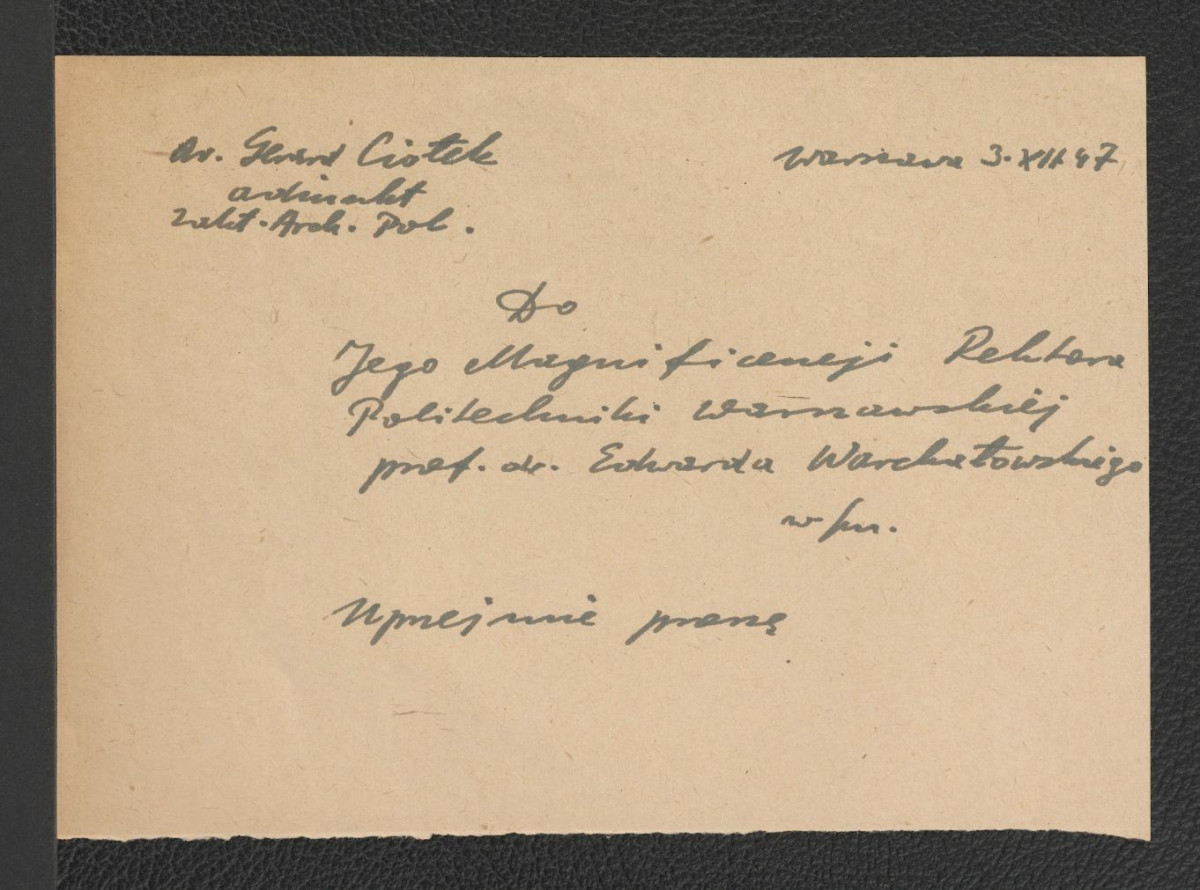 dr. Gerard Ciołek
Warszawa 3.XII.47
adiunkt
Zakł. Arch. Pol.
Do
Jego Magnificencji Rektora
Politechniki Warszawskiej
prof. dr. Edwarda Warchałowskiego
w/m.
Uprzejmie proszę